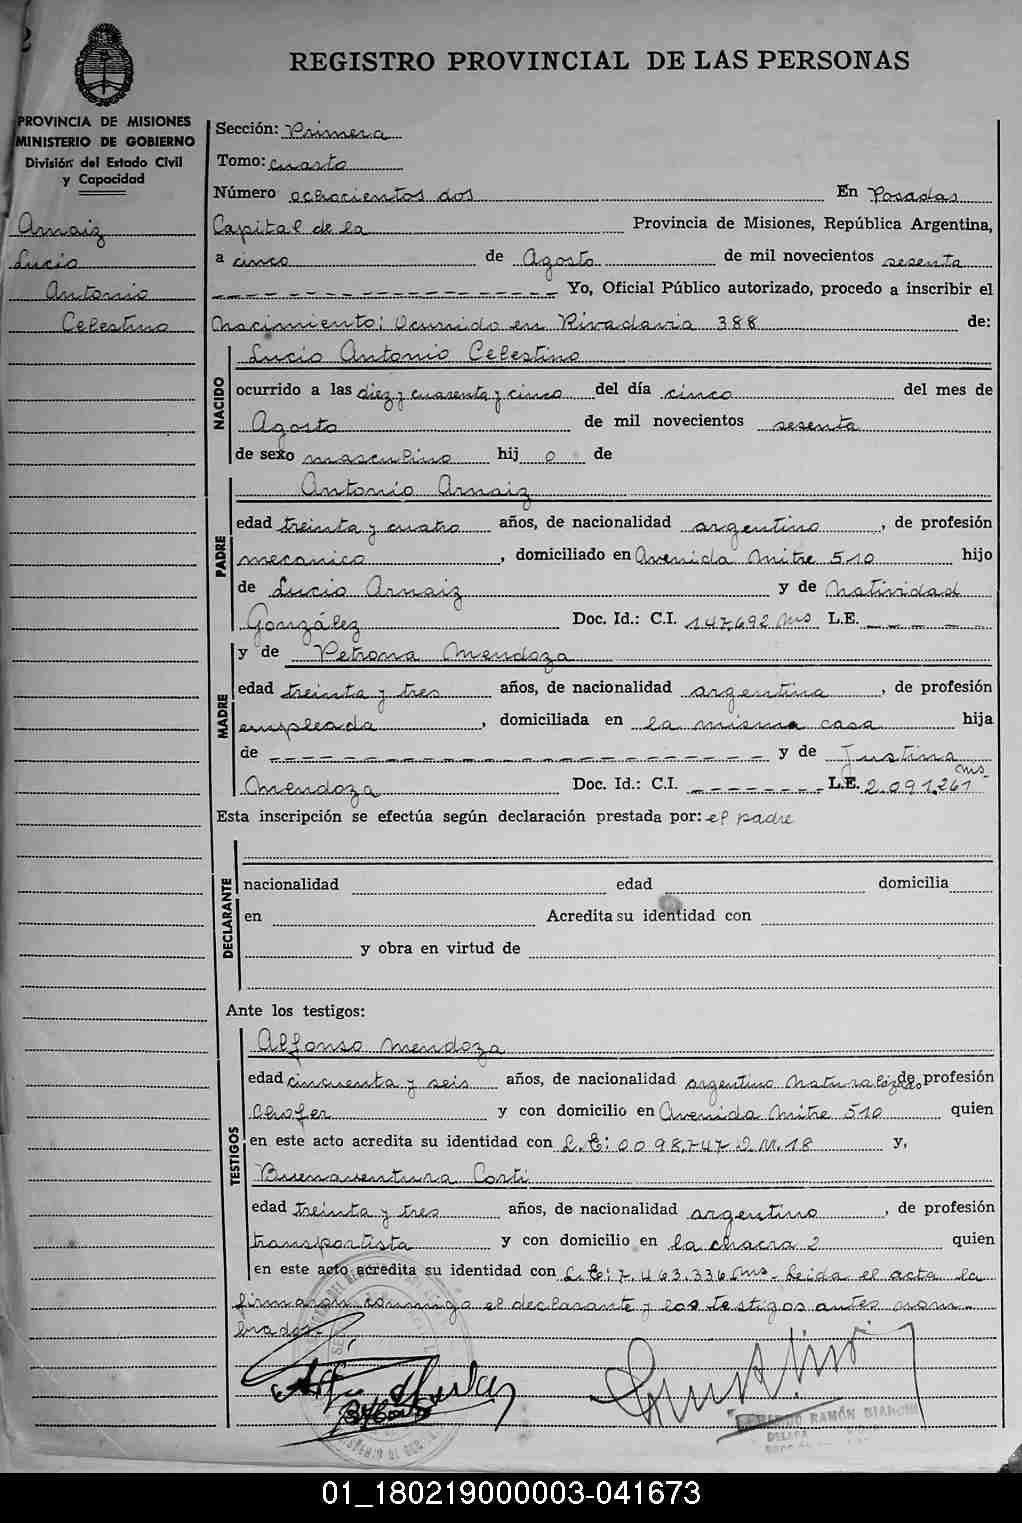 REGISTRO PROVINCIAL DE LAS PERSONAS
PROVINCIA DE MISIONES
MINISTERIO DE GOBIERNO
División del Estado Civil
y Capacidad
Arnaiz
Lucio
Antonio
Celestino
Sección: Primera
Tomo: cuarto
Número ochocientos dos En Posadas
Capital de la Provincia de Misiones, República Argentina,
a cinco de Agosto de mil novecientos sesenta
Yo, Oficial Público autorizado, procedo a inscribir el
Nacimiento: Ocurrido en Rivadavia 388 de:
NACIDO
Lucio Antonio Celestino
ocurrido a las diez y cuarenta y cinco del día cinco del mes de
Agosto de mil novecientos sesenta
de sexo masculino hij o de
PADRE
Antonio Arnaiz
edad treinta y cuatro años, de nacionalidad argentino, de profesión
mecanico, domiciliado en Avenida Mitre 510 hijo
de Lucio Arnaiz y de Natividad
González Doc. Id.: C.I. 147.692 Mns L.E.
MADRE
y de Petrona Mendoza
edad treinta y tres años, de nacionalidad argentina, de profesión
empleada, domiciliada en la misma casa hija
de y de Justina
Mendoza Doc. Id.: C.I. L.E. 2.091.261 Mns
Esta inscripción se efectúa según declaración prestada por: el padre
DECLARANTE
nacionalidad edad domicilia
en Acredita su identidad con
y obra en virtud de
Ante los testigos:
TESTIGOS
Alfonso Mendoza
edad cincuenta y seis años, de nacionalidad argentino naturalizado, de profesión
Chofer y con domicilio en Avenida Mitre 510 quien
en este acto acredita su identidad con L.E: 0098.747 D.M.18 y,
Buenaventura Corti
edad treinta y tres años, de nacionalidad argentino, de profesión
transportista y con domicilio en la chacra 2 quien
en este acto acredita su identidad con L.E: 7.463.336 Mns. Leida el acta la
firmaron conmigo el declarante y los testigos antes nom-
brados.
RAMÓN BIANCHI
01_180219000003-041673